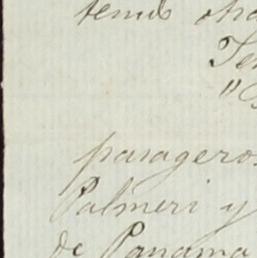 tenido otra
pasageros
Palmeri y
de Panama